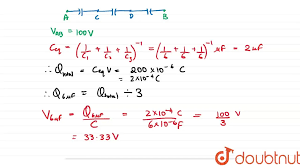 A C D B
V_eq = 100V
C_eq = (1/C₁ + 1/C₂ + 1/C₃)⁻¹ = (1/6 + 1/6 + 1/6)⁻¹ μF = 2μF
∴ Q_total = C_eq V = 200×10⁻⁶ C
= 2×10⁻⁴ C
∴ Q_6μF = Q_total ÷ 3
V_6μF = Q_6μF / C = 2×10⁻⁴ C / 6×10⁻⁶ F = 100/3 V
= 33.33 V